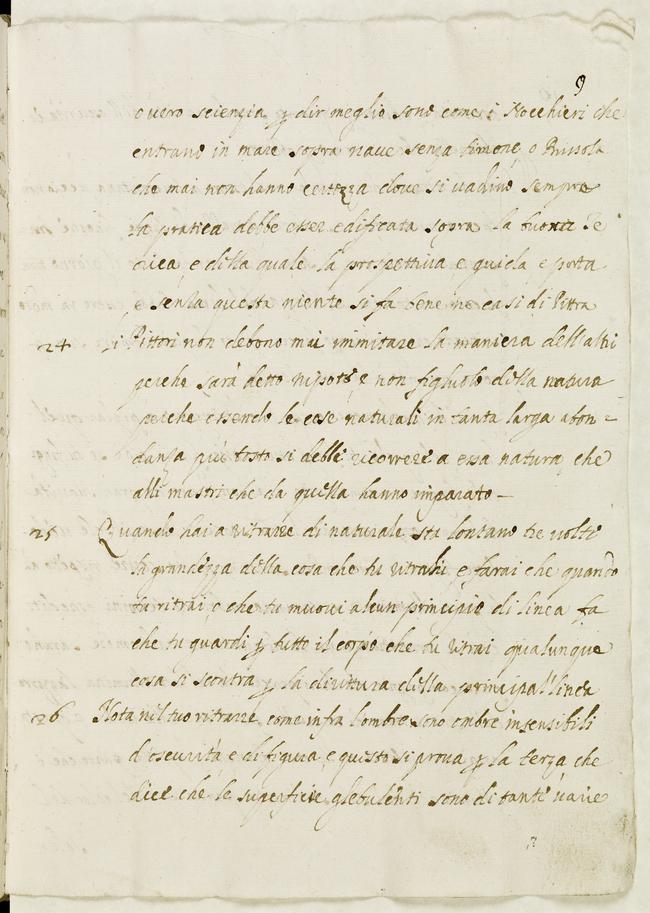 9
overo scienzia p dir meglio sono come i Nocchieri che
entrano in mare sopra nave senza timone, o Bussola
che mai non hanno certezza dove si vadino sempre
la pratica debbe esser edificata sopra la buona Te
orica, e della quale la prospettiva e guida e porta
e senza questa niente si fa bene ne casi di Pittra
24 i Pittori non debono mai immitare la maniera dell'altri
perche sarà detto nipote e non figliuolo della natura
perche essendo le cose naturali in tanta larga abon=
danza piu tosto si debbe ricorrere a essa natura che
alli mastri che da quella hanno imparato —
25 Quando hai a ritrarre di naturale sta lontano tre volte
la grandezza della cosa che tu ritrahi, e farai che quando
tu ritrai, o che tu muovi alcun principio di linea fa
che tu guardi p tutto il corpo che tu ritrai qualunque
cosa si scontra p la dirittura della principal' linea
26 Nota nel tuo ritrarre come infra l'ombre sono ombre insensibili
d'oscurità e di figura, e questo si prova p la terza che
dice che le superficie globulenti sono di tante varie